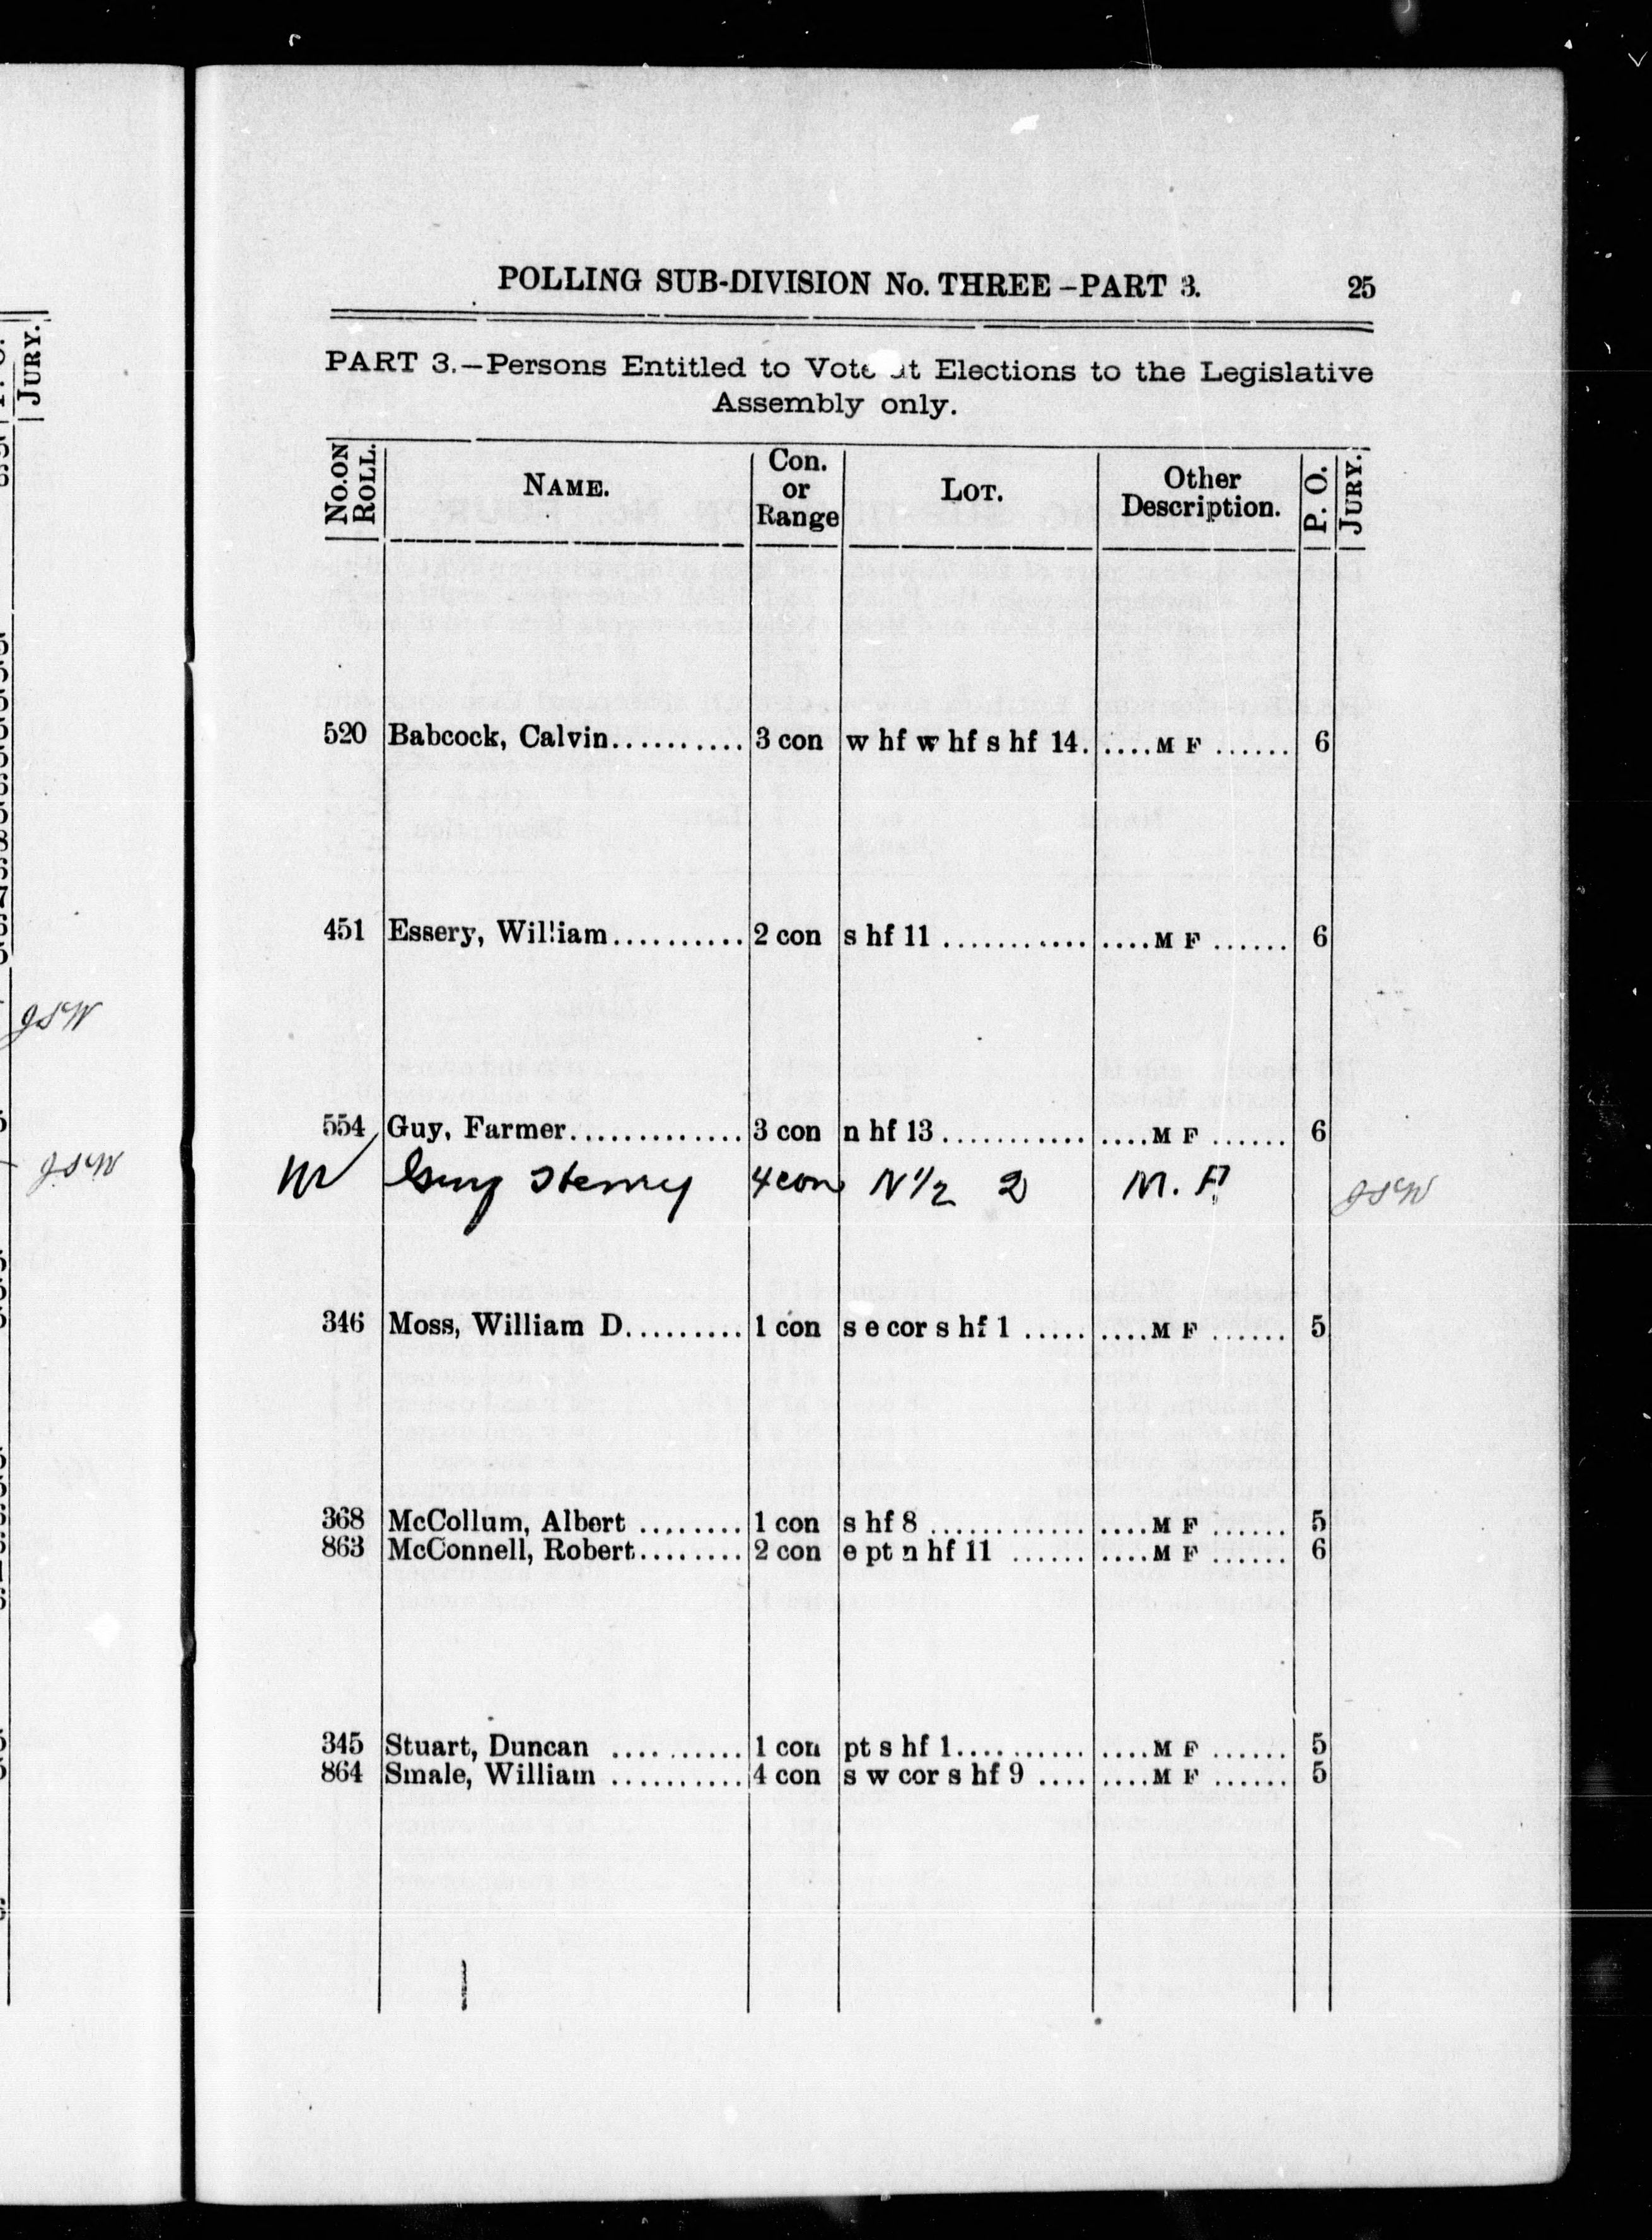 POLLING SUB-DIVISION No. THREE –PART 3. 25
PART 3.–Persons Entitled to Vote at Elections to the Legislative
Assembly only.
No. ON ROLL. NAME. Con. or Range LOT. Other Description. P. O. JURY.
520 Babcock, Calvin........... 3 con w hf w hf s hf 14. ....M F ...... 6
451 Essery, William.......... 2 con s hf 11 ........... ....M F ...... 6
554 Guy, Farmer............. 3 con n hf 13........... ....M F ...... 6
Guy Henry 4 con N 1/2 2 M. F. JSW
346 Moss, William D......... 1 con s e cor s hf 1 ..... ....M F ...... 5
368 McCollum, Albert ........ 1 con s hf 8 ............ ....M F ...... 5
863 McConnell, Robert........ 2 con e pt n hf 11 ...... ....M F ...... 6
345 Stuart, Duncan .......... 1 con pt s hf 1........... ....M F ...... 5
864 Smale, William .......... 4 con s w cor s hf 9 .... ....M F ...... 5
JURY.
JSW
JSW